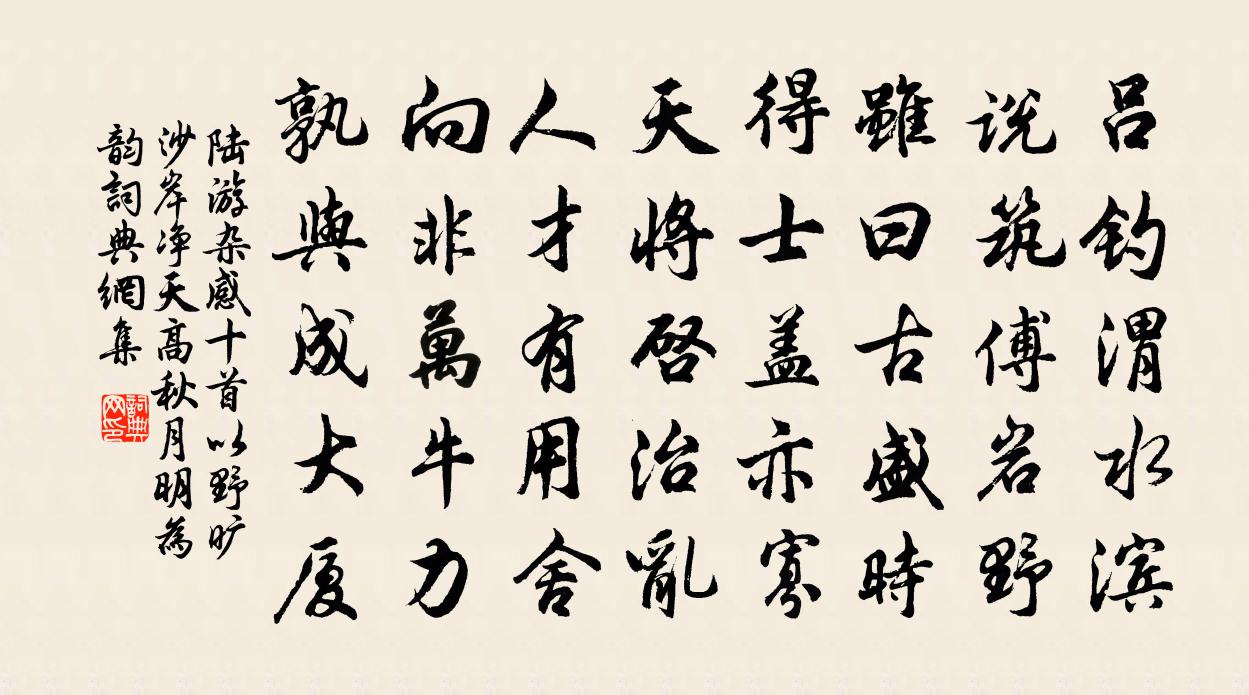 吕钓渭水滨
说筑傅岩野
雖曰古盛時
得士盖亦寡
天將啓治亂
人才有用舍
向非萬牛力
孰與成大厦
陆游杂感十首以野旷
沙岸净天高秋月明為
韵詞典網集
詞典
网印